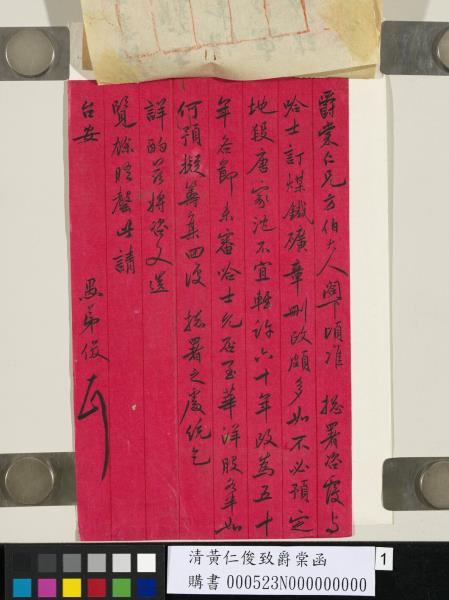 爵棠仁兄方伯大人閣下頃准 總署咨覆与
哈士訂煤鐵礦章刪改頗多如不必預定
地段唐家沱不宜輕許六十年改為五十
年各節未審哈士允否至華洋股本如
何預擬籌集四復 總署之處統乞
詳酌茲將咨文送
覽餘晤馨此請
台安
愚弟俊
清黃仁俊致爵棠函
購書 000523N000000000
1